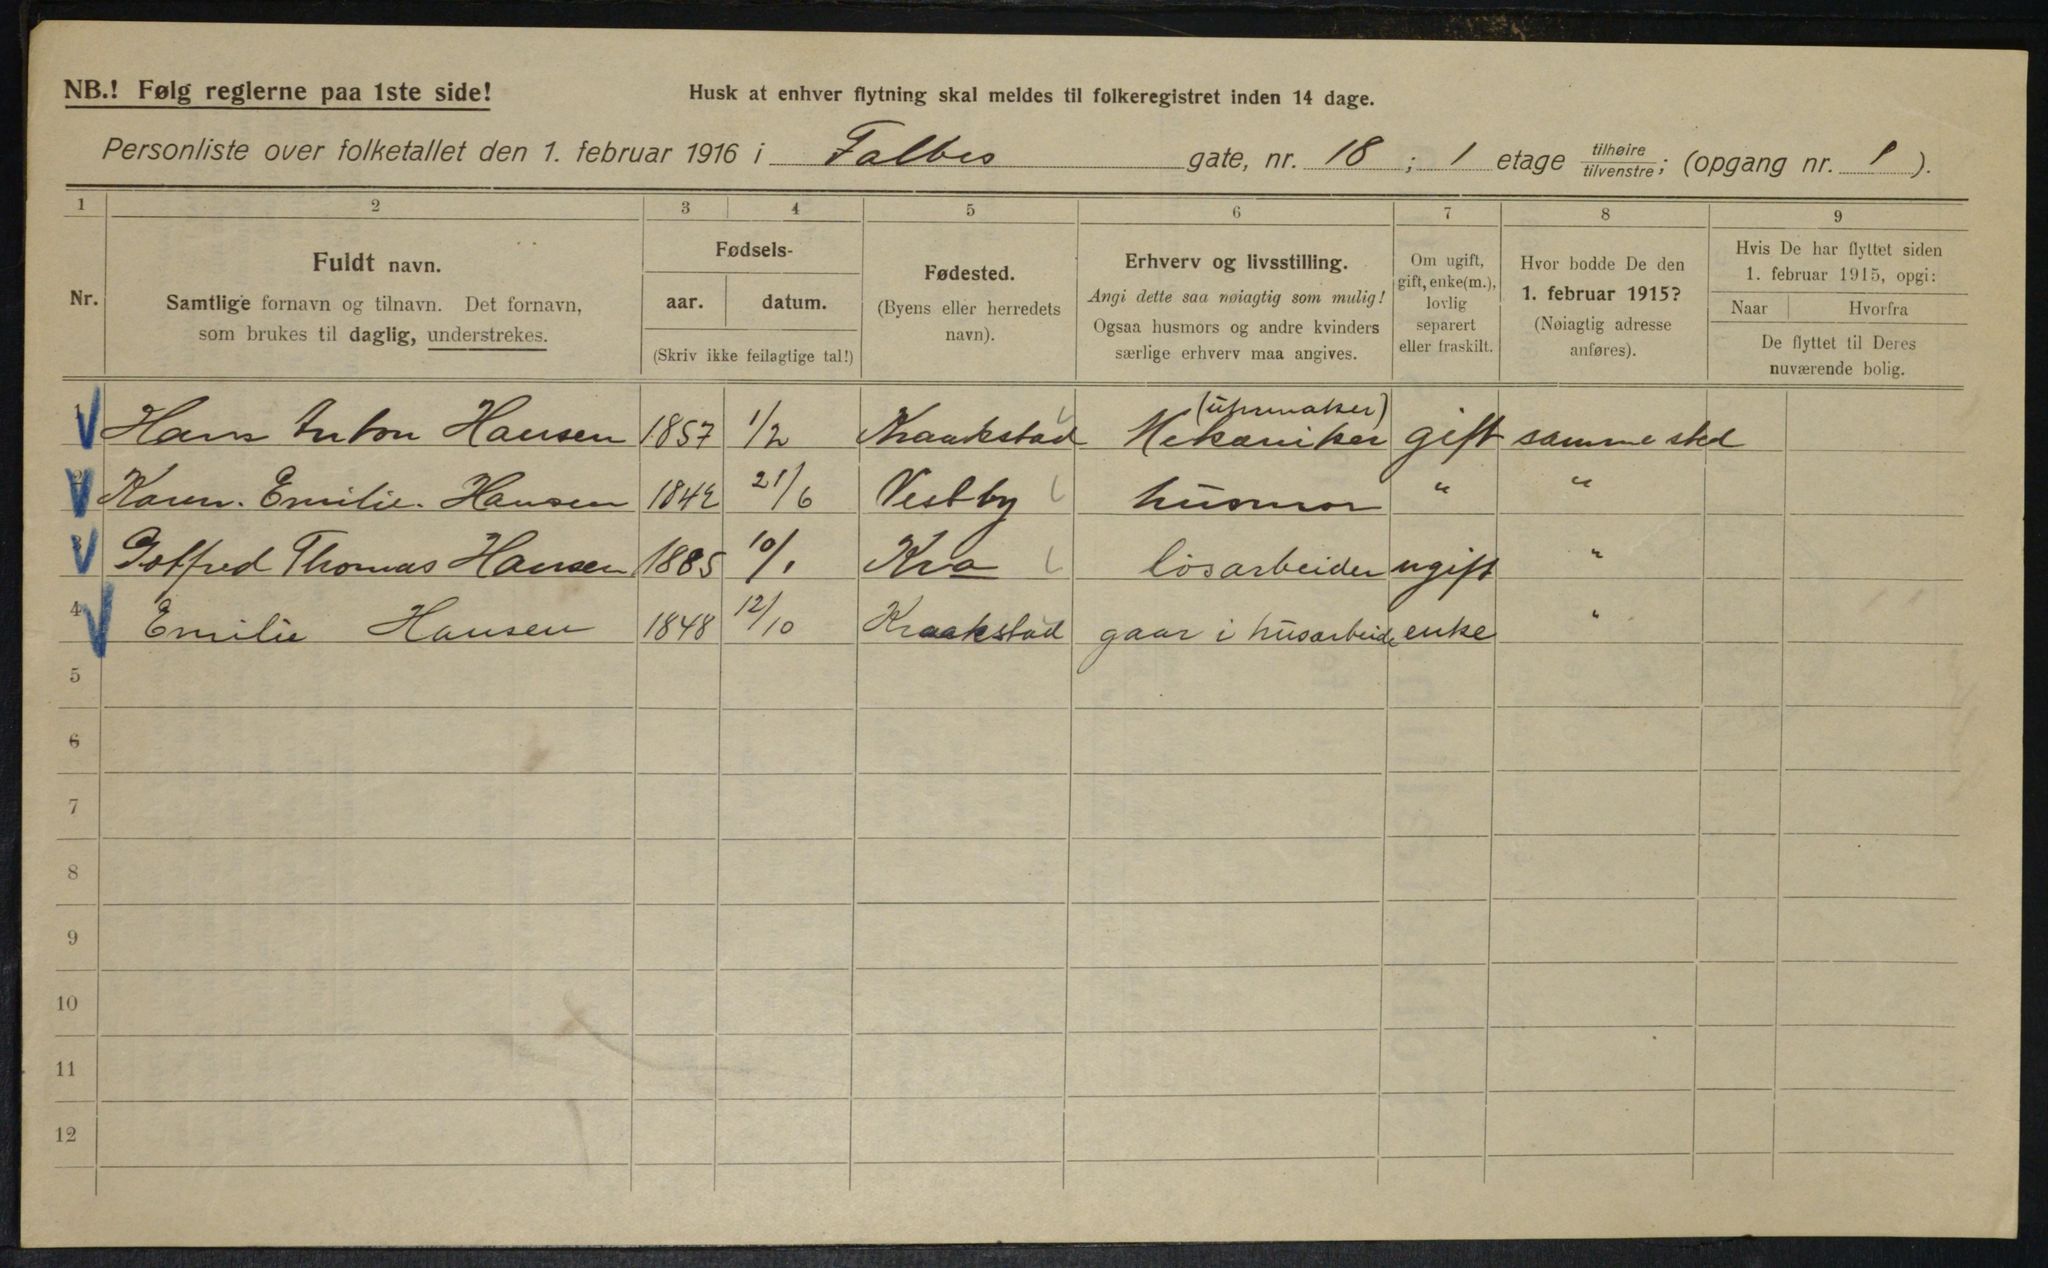 NB.! Følg reglerne paa 1ste side!
Husk at enhver flytning skal meldes til folkeregistret inden 14 dage.
Personliste over folketallet den 1. februar 1916 i Falbes gate, nr. 18 ; 1 etage tilhøire/tilvenstre; (opgang nr. 1 ).
1 2 3 4 5 6 7 8 9
Nr.
Fuldt navn.
Samtlige fornavn og tilnavn. Det fornavn,
som brukes til daglig, understrekes.
Fødsels-
aar. datum.
(Skriv ikke feilagtige tal!)
Fødested.
(Byens eller herredets
navn).
Erhverv og livsstilling.
Angi dette saa nøiagtig som mulig!
Ogsaa husmors og andre kvinders
særlige erhverv maa angives.
Om ugift,
gift, enke(m.),
lovlig
separert
eller fraskilt.
Hvor bodde De den
1. februar 1915?
(Nøiagtig adresse
anføres).
Hvis De har flyttet siden
1. februar 1915, opgi:
Naar Hvorfra
De flyttet til Deres
nuværende bolig.
(uhrmaker)
1 Hans Anton Hansen 1857 1/2 Kraakstad Mekaniker gift samme sted
2 Karen. Emilie. Hansen 1842 21/6 Vestby husmor " "
3 Gotfred Thomas Hansen 1885 10/1 Kra løsarbeider ugift "
4 Emilie Hansen 1848 12/10 Kraakstad gaar i husarbeide enke "
5
6
7
8
9
10
11
12